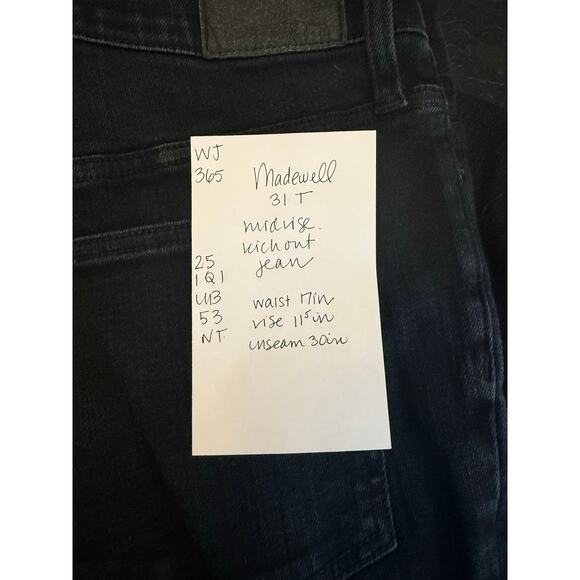 WJ
365
Madewell
31 T
midrise
kickout
jean
25
1Q1
UB
53
NT
waist 17in
rise 11.5in
inseam 30in